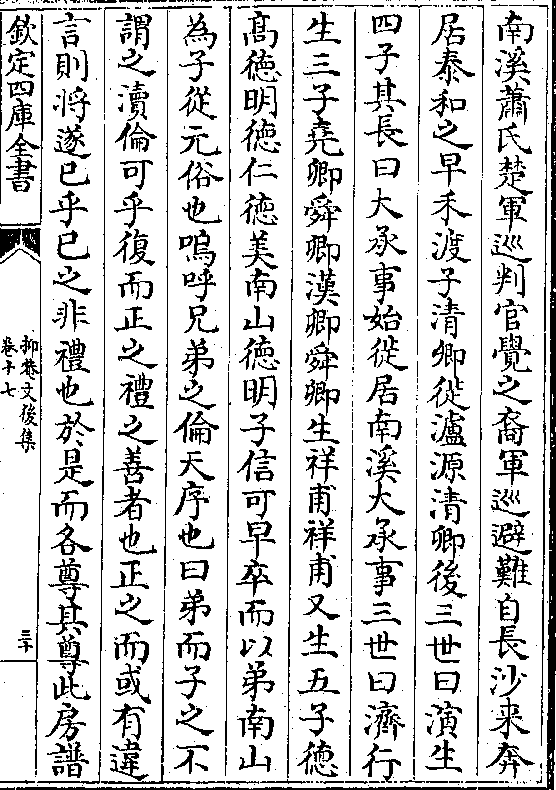 南溪蕭氏楚軍巡判官覺之裔軍巡避難自長沙来奔
居泰和之早禾渡子清卿從瀘源清卿後三世曰演生
四子其長曰大承事始徙居南溪大承事三世曰濟行
生三子堯卿舜卿漢卿舜卿生祥甫祥甫又生五子德
髙德明德仁德美南山德明子信可早卒而以弟南山
為子從元俗也嗚呼兄弟之倫天序也曰弟而子之不
謂之瀆倫可乎復而正之禮之善者也正之而或有違
言則將遂已乎已之非禮也於是而各尊其尊此房譜
欽定四庫全書
抑菴文後集
卷十七
三十